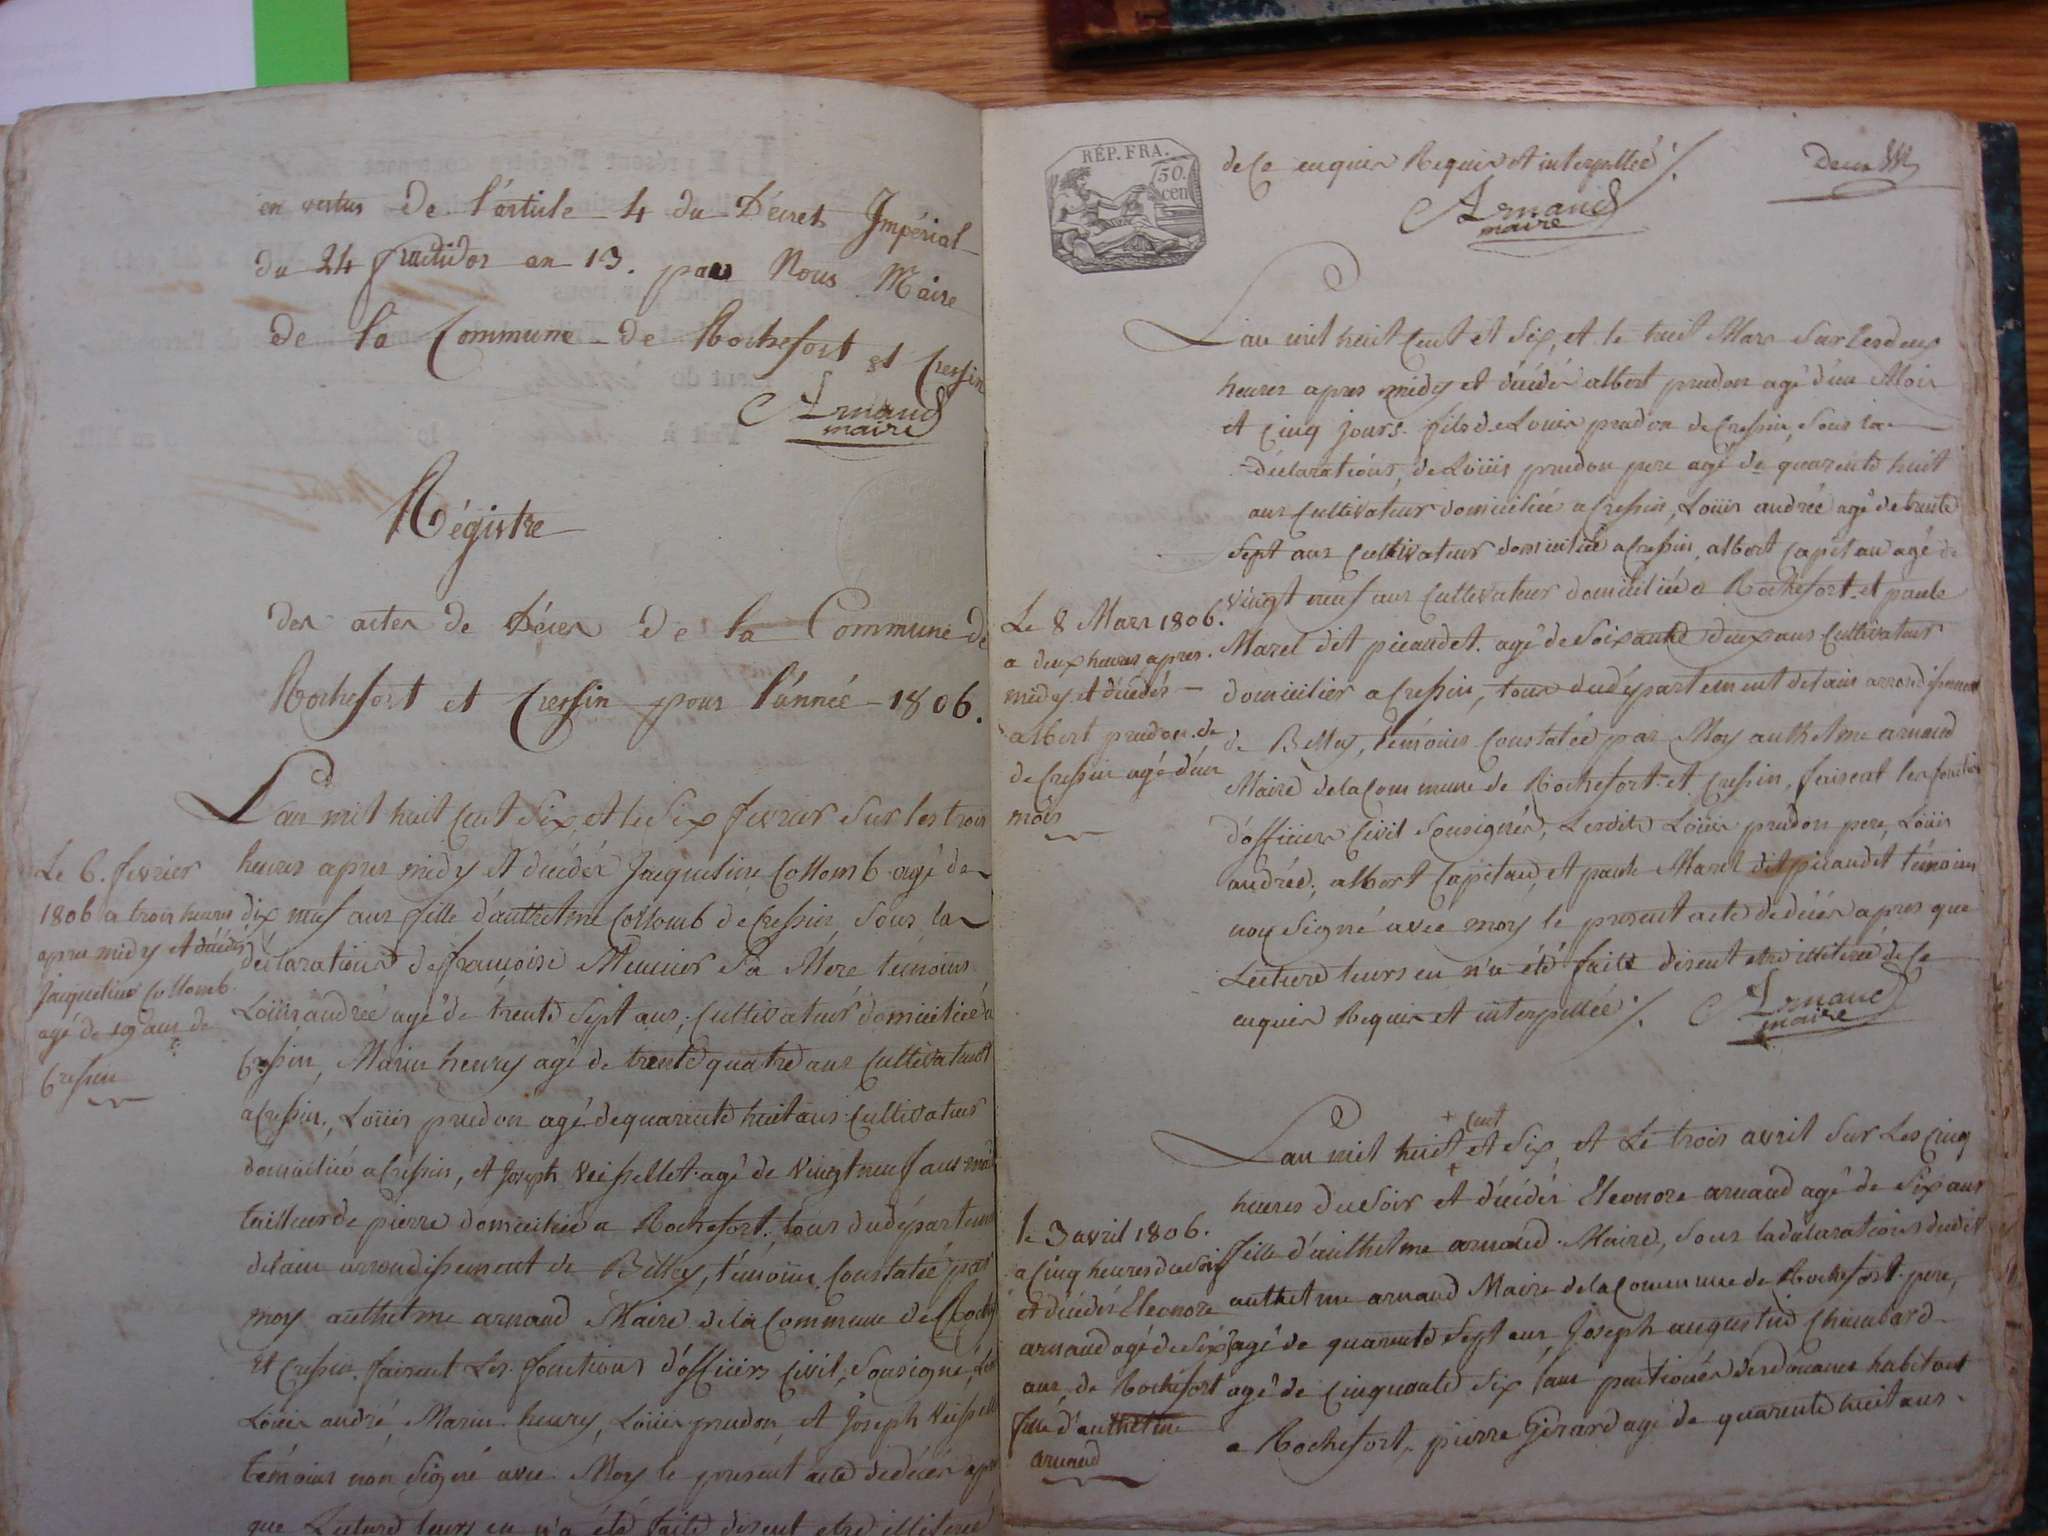 en vertus de l'artícle 4 du Décret Impérial
du 24 fructidor an 13. par Nous Maire
de la Commune de Rochefort et Cressin
Arnaud
maire
Régistre
des actes de Décès de la Commune de
Rochefort et Cressin pour l'année 1806.
Le 6. fevrier
1806 a trois heures
apres midy et décédée
Jacqueline Collomb
agé de 19 ans de
Cressin
L'an mil huit Cent Six, et le Six fevrier Sur les trois
heures apres midy et décédée Jacqueline Collomb agé de
dix neuf ans fille d'anthelme Collomb de Cressin, Sous la
déclaration de françoise Meunier Sa Mère témoins
Loüis andrée agé de trente Sept ans, Cultivateur domicilié a
Cressin, Marin henry agé de trente quatre ans Cultivateur
a Cressin, Loüis prudon agé de quarente huit ans Cultivateur
domicilié a Cressin, et Joseph Veissellet agé de Vingt neuf ans
tailleur de pierre domicilié a Rochefort, tous du départem
de lain arrondissement de Belley, témoins Constatée par
moy anthelme arnaud Maire de la Commune de Roch
et Cressin faisent Les fonctions d'officier Civil, Sousigné,
Loüis andré, Marin henry, Loüis prudon, et Joseph Veissell
témoins non Signé avec Moy le present acte de décès apr
que Lecture leurs en n'a été faite disent etre illiteré
RÉP. FRA.
50.
cen
de Ce enquis Requis et interpellée
Deux
Arnaud
maire
Le 8 Mars 1806.
a deux heures apres
midy et décédé
albert prudon de
de Cressin agé d'un
mois
L'an mil huit Cent et Six, et le huit Mars Sur les deux
heures apres midy et décédé albert prudon agé d'un Mois
et Cinq Jours fils de Louis prudon de Cressin, Sous la
déclaration, de Loüis prudon pere agé de quarente huit
ans Cultivateur domicilié a Cressin, Loüis andrée agé de trente
Sept ans Cultivateur domicilié a Cressin, albert Capitan agé de
Vingt neuf ans Cultivateur domicilié a Rochefort et paule
Marel dit picaudet agé de Soixante deux ans Cultivateur
domicilier a Cressin, tous du département de lain arrondissement
de Belley, témoins Constatée par Moy anthelme arnaud
Maire de la Commune de Rochefort et Cressin, faisent les fonction
d'officier Civil Sousignés, Lesdits Loüis prudon pere, Loüis
andrée, albert Capitan, et paule Marel dit picaudet témoins
non Signé avec moy le present acte de décès apres que
Lecture leurs en n'a été faite disent etre illiteré de Ce
enquis Requis et interpellée
Arnaud
maire
le 3 avril 1806.
a Cinq heures du Soir
et décédée Eleonore
arnaud agé de Six
ans de Rochefort
fille d'anthelme
arnaud
Cent
L'an mil huit et Six, et Le trois avril Sur Les Cinq
heures du Soir et décédée Eleonore arnaud agé de Six ans
fille d'anthelme arnaud Maire, Sous la déclaration dudit
anthelme arnaud Maire de la Commune de Rochefort pere,
agé de quarente Sept ans, Joseph augustin Chambard
agé de Cinquante Six ans des douanes habitant
a Rochefort, pierre Girard agé de quarente huit ans